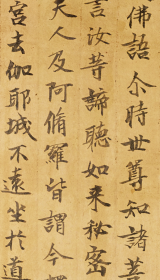 佛語尒時世尊知諸菩
言汝等諦聽如来秘密
天人及阿脩羅皆謂今
宮去伽耶城不遠坐扵道